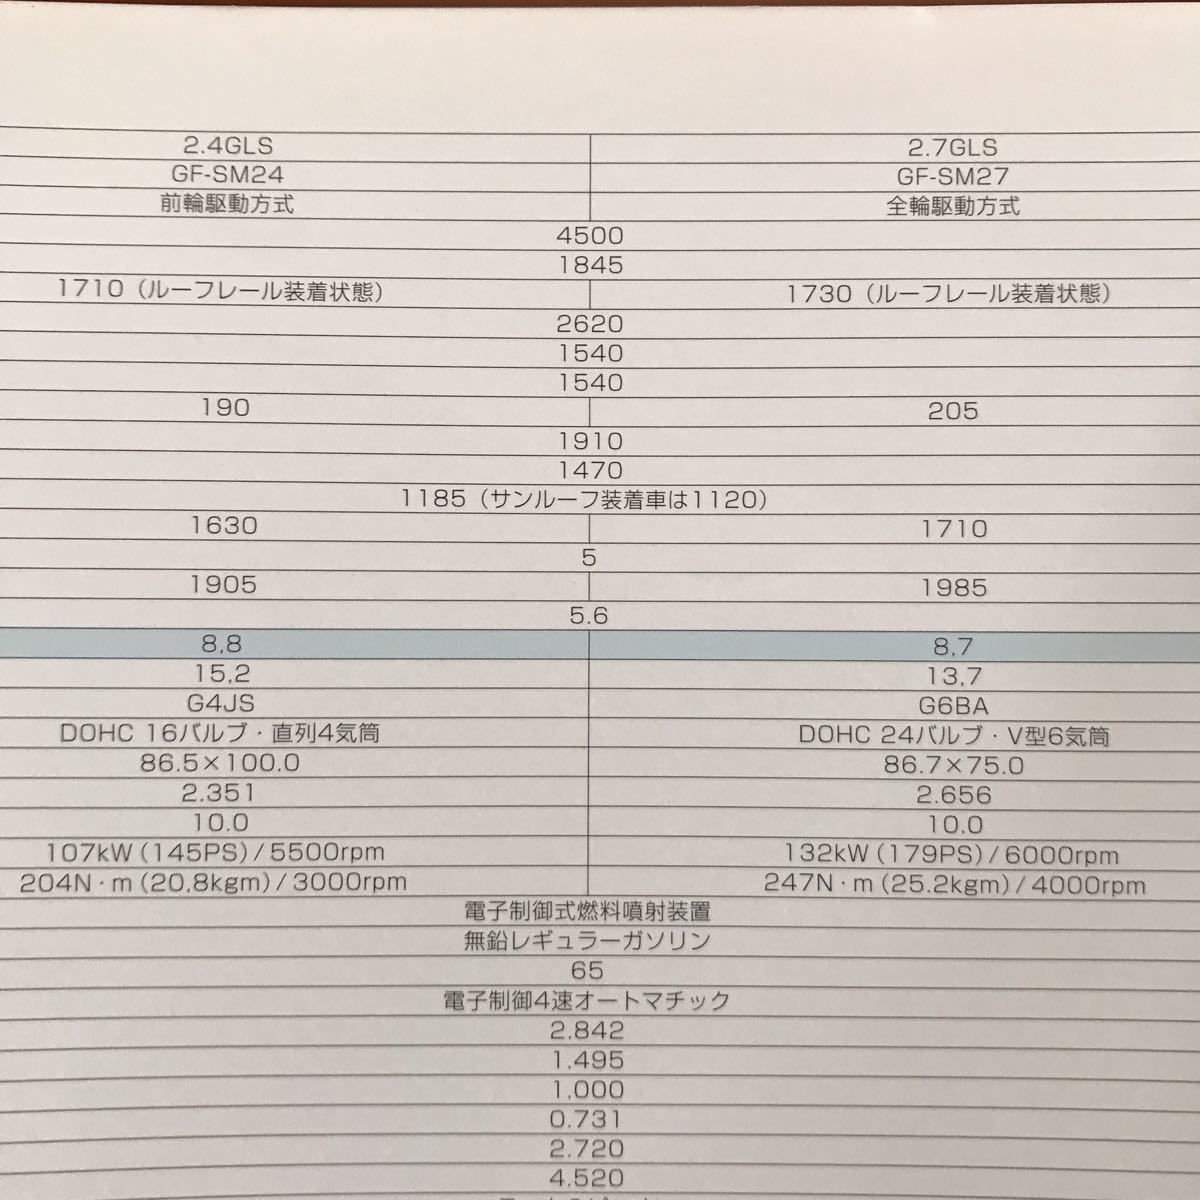 2.4GLS 2.7GLS
GF-SM24 GF-SM27
前輪駆動方式 全輪駆動方式
4500
1845
1710（ルーフレール装着状態） 1730（ルーフレール装着状態）
2620
1540
1540
190 205
1910
1470
1185（サンルーフ装着車は1120）
1630 1710
5
1905 1985
5.6
8.8 8.7
15.2 13.7
G4JS G6BA
DOHC 16バルブ・直列4気筒 DOHC 24バルブ・V型6気筒
86.5×100.0 86.7×75.0
2.351 2.656
10.0 10.0
107kW（145PS）/5500rpm 132kW（179PS）/6000rpm
204N・m（20.8kgm）/3000rpm 247N・m（25.2kgm）/4000rpm
電子制御式燃料噴射装置
無鉛レギュラーガソリン
65
電子制御4速オートマチック
2.842
1.495
1.000
0.731
2.720
4.520